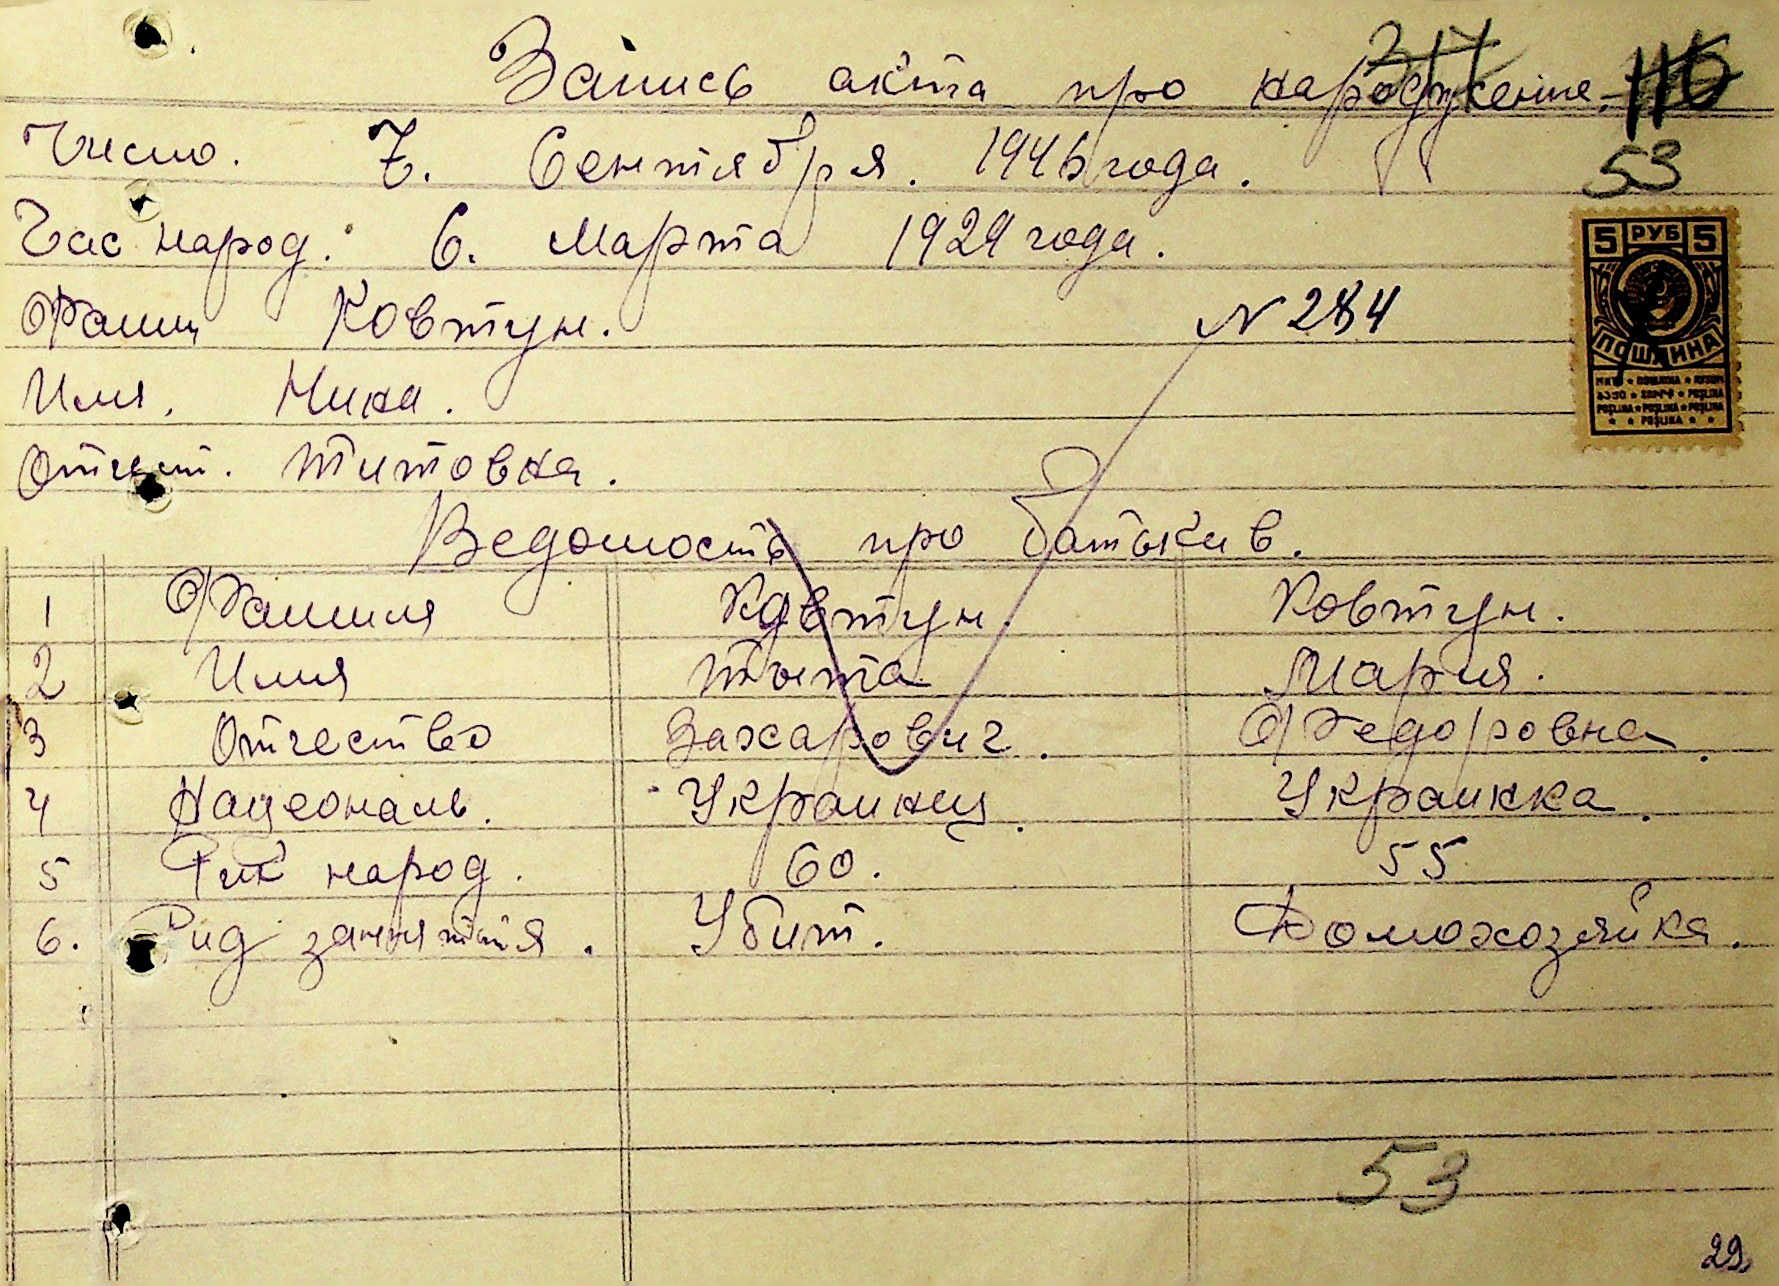 317 116
Запись акта про народжение.
53
Число. 7. Сентября. 1946 года.
Час народ. 6. Марта 1929 года.
5 РУБ 5
ПОШЛИНА
Фамил Ковтун. N 284
Имя. Нина.
Отчест. Титовна.
Ведомость про батькив.
1 Фамилия Ковтун. Ковтун.
2 Имя Тыта Мария.
3 Отчество Захарович. Федоровна.
4 Нацеональ. Украинец. Украинка.
5 Рик народ. 60. 55
6. Рид заннятия. Убит. Домохозяйка.
53
29.